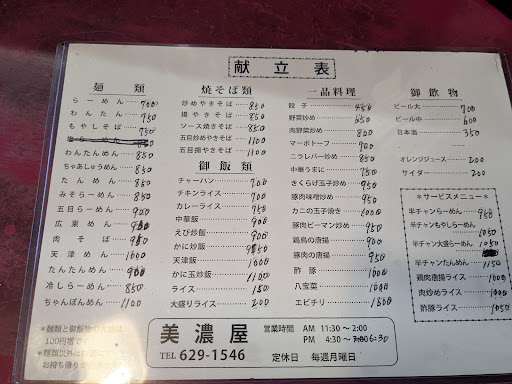 献立表
麺類
らーめん……700
わんたん……750
もやしそば……750
わんたんめん……850
ちゃあしゅうめん……850
たんめん……850
みそらーめん……850
五目らーめん……900
広東めん……900
肉そば……850
天津めん……1000
たんたんめん……900
冷しらーめん……850
ちゃんぽんめん……1100
焼そば類
炒めやきそば……850
揚やきそば……850
ソース焼きそば……850
五目炒めやきそば……1100
五目揚やきそば……1100
御飯類
チャーハン……700
チキンライス……700
カレーライス……950
中華飯……900
えび炒飯……900
かに炒飯……950
天津飯……1000
かに玉炒飯……1100
ライス……150
大盛りライス……200
一品料理
餃子……450
野菜炒め……650
肉野菜炒め……800
マーボトーフ……900
ニラレバー炒め……850
中華うまに……950
きくらげ玉子炒め……950
豚肉味噌炒め……950
カニの玉子焼き……1000
豚肉ピーマン炒め……950
鶏鳥の唐揚……900
豚肉の唐揚……900
酢豚……1000
八宝菜……1000
エビチリ……1800
御飲物
ビール大……700
ビール中……600
日本酒……350
オレンジジュース……200
サイダー……200
*サービスメニュー*
半チャンらーめん……950
半チャンもやしらーめん……1050
半チャン大盛らーめん……1050
半チャンたんめん……1150
鶏肉唐揚ライス……1000
肉炒めライス……1000
酢豚ライス……1050
*麺類と御飯類の大盛は
100円増で
*麺類以外は
お持ち帰りが
美濃屋
TEL 629-1546
営業時間 AM 11:30～2:00
PM 4:30～6:30
定休日 毎週月曜日